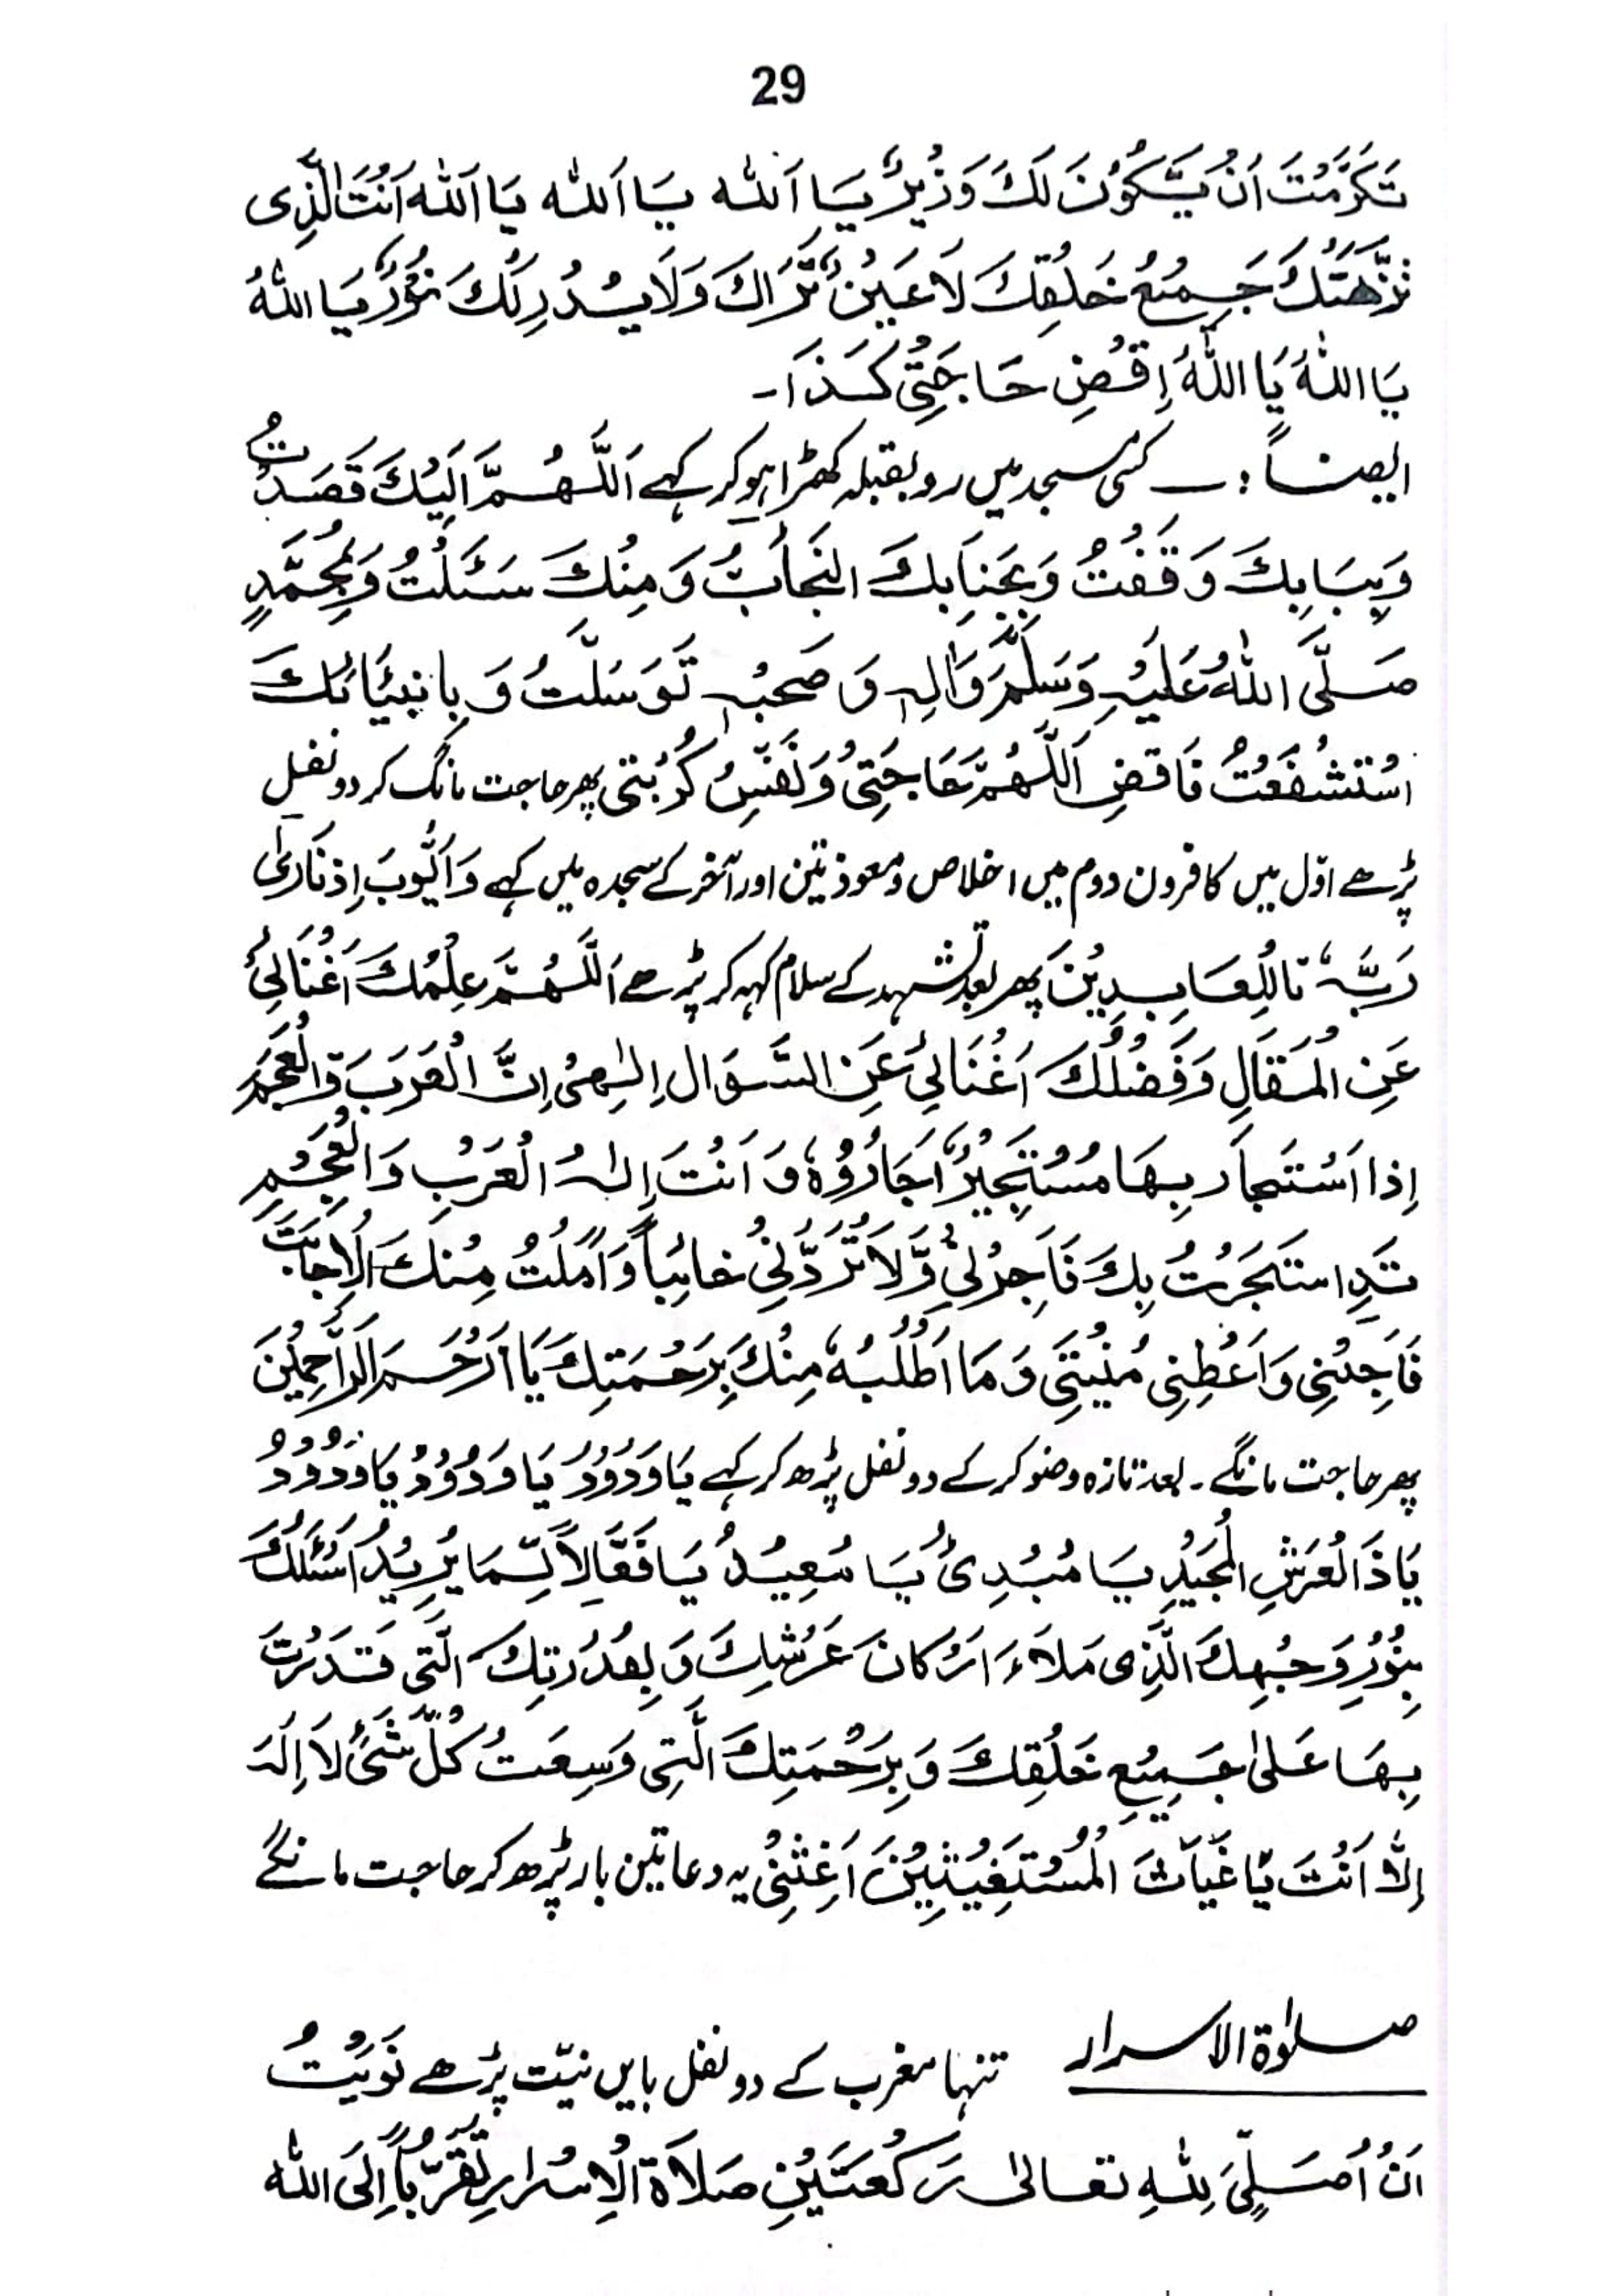 29
تَكَرَّمْتَ اَنْ يَّكُوْنَ لَكَ وَزُيْرٌ يَا اَللّٰه يَا اَللّٰه يَا اَللّٰه اَنْتَ الَّذِى
نَزَّهَتْكَ جَمِيْعُ خَلْقِكَ لَا عَيْنٌ تَرَاكَ وَلَا يُدْرِكُكَ نُوْرٌ يَا اللّٰهُ
يَا اللّٰهُ يَا اللّٰهُ اِقْضِ حَاجَتِىْ كَذَا۔
ایضاً :۔ کسی مسجد میں رو بقبلہ کھڑا ہو کر کہے اَللّٰهُمَّ اَلَيْكَ قَصَدْتُ
وَبِبَابِكَ وَقَفْتُ وَبِجَنَابِكَ النَجأبُّ وَمِنْكَ سَئَلْتُ وَبِمُحَمَّدٍ
صَلَّى اللّٰهُ عَلَيْهِ وَسَلَّمَ وَاٰلِهٖ وَ صَحبْهٖ تَوَسَلّتُ وَ بِانبِيَائكَ
اسْتَشْفَعْتُ فَاقضِ اَللّٰهُمَّ حَاجَتِىْ وَنَفِّسْ كُرْبَتِى پھر حاجت مانگ کر دو نفل
پڑھے اوّل میں کافرون دوم میں اخلاص و معوذتین اور آخر کے سجدہ میں کہے وَاَيُّوبَ اِذنَادٰى
رَبَّهٗ تا لِلْعَابِدِيْنَ پھر بعد تشہد کے سلام کہہ کر پڑھے اَللّٰهُمَّ عِلْمُكَ اَغْنَانِىْ
عَنِ الْمَقَالِ وَفَضْلُكَ اَغْنَانِىْ عَنِ السَّوَال اِلٰهِىْ اِنَّ الْعَرَبَ وَالْعَجَمَ
اِذا اَسْتَجاَر بِهَا مُسْتَجِيْرٌ اَجَارُوْهُ وَ اَنْتَ اِلٰهُ الْعَرْبِ وَالْعَجِمِ
قَدِ استَجَرْتُ بِكَ فَاَجِرْنِىْ وَّلَا تُرَدِّنِىْ خائِباً وَاَمَلْتُ مِنْكَ الْاِجَابَتَ
فَاَجِبْنِى وَاَعْطِنِى مُنْيَتِى وَمَا اَطْلُبُهٗ مِنْكَ بِرَحْمَتِكَ يَا اَرْحَمَ الرَّاحِمِيْنَ
پھر حاجت مانگے۔ بعد تازہ وضو کر کے دو نفل پڑھ کر کہے يَا وَدُوْدُ يَا وَدُوْدُ يَا وَدُوْدُ
يَا ذَالْعَرَشِ الْمَجَيْدِ يَا مُبْدِىُٔ يَا مُعِيْدُ يَا فَعَّالاً لِّمَا يُرِيْدُ اَسْئَلُكَ
بِنُوْرِ وَجْهِكَ الَّذِى مَلَاءَ اَرْكَانَ عَرْشِكَ وَ بِقُدْرَتِكَ الَّتِى قَدَرْتَ
بِهَا عَلىٰ جَمِيْعِ خَلْقِكَ وَ بِرَحْمَتِكَ الَّتِى وَسِعَتْ كُلَّ شَىْءٍ لَا اِلٰهَ
اِلَّا اَنْتَ يَا غَيَاثَ الْمُسْتَغِيْثِيْنَ اَغِثْنِىْ یہ دعا تین بار پڑھ کر حاجت مانگے
صلوٰة الاسرار تنہا مغرب کے دو نفل بایں نیّت پڑھے نَوَيْتُ
اَنْ اُصَلِّىَ لِلّٰهِ تعالیٰ رَكْعَتَيْنِ صَلَاةَ الْاِسْرارِ تَقَرُّباً اِلَى اللّٰه